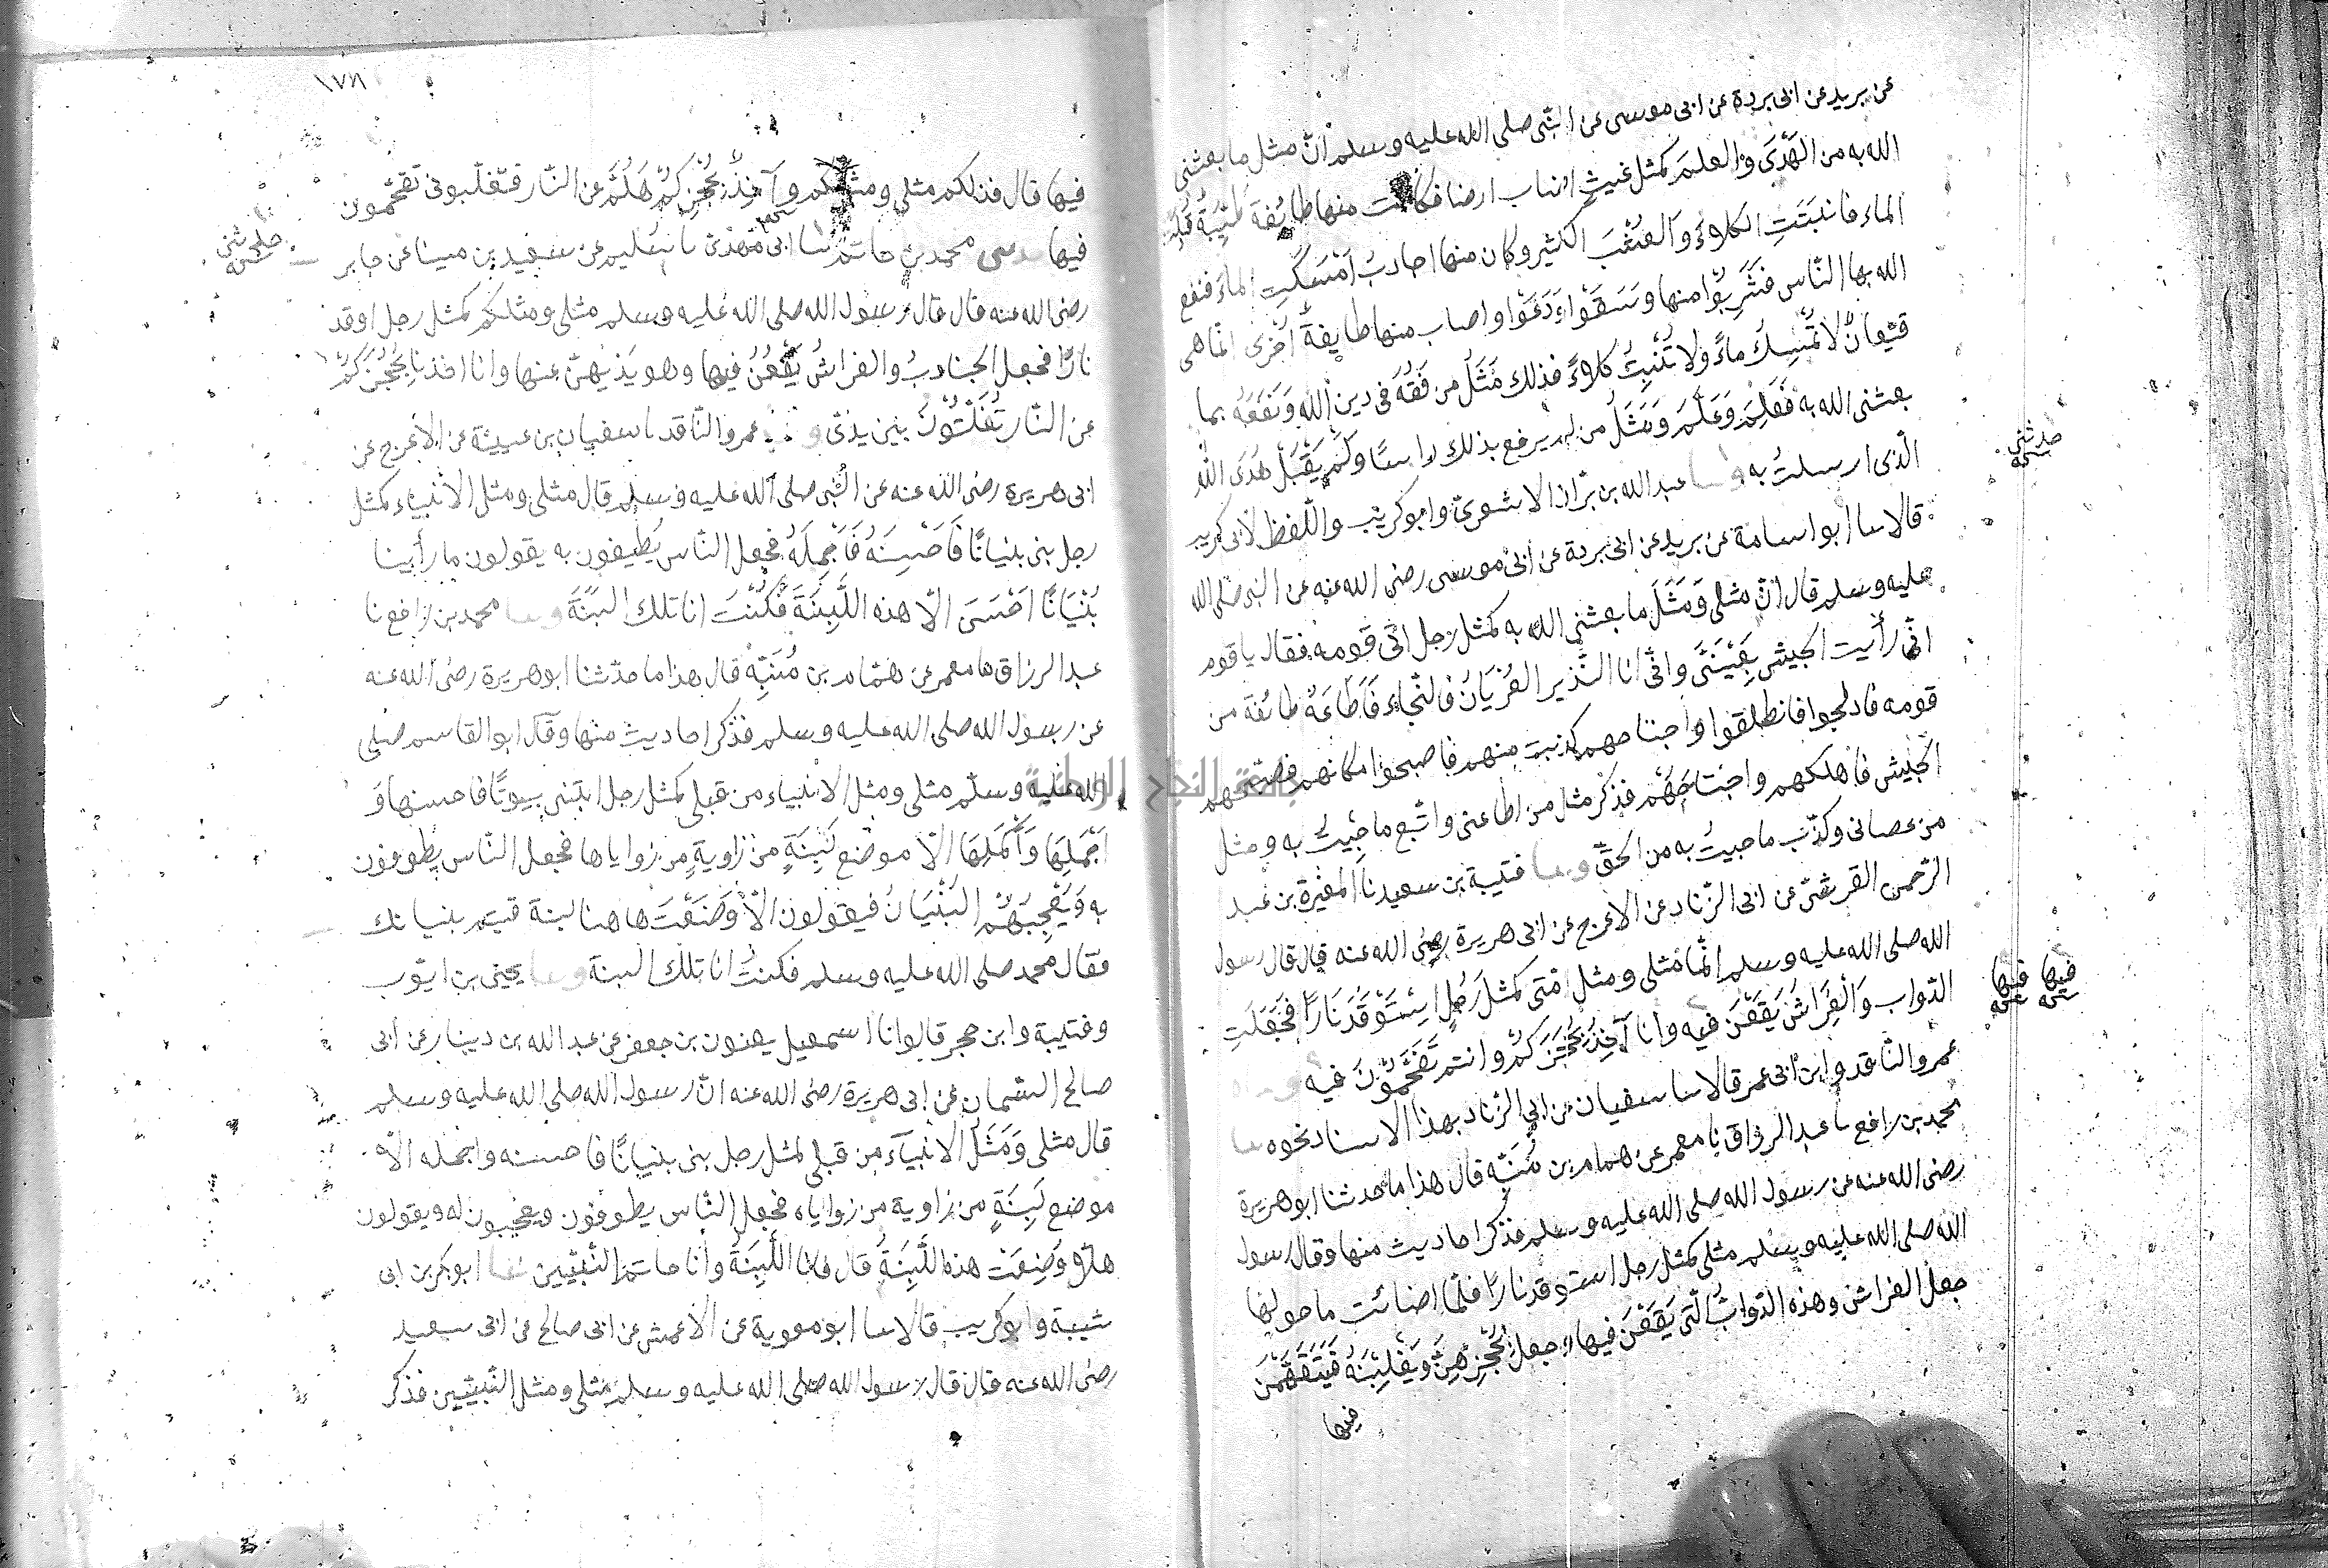 عن بريد عن ابى بردة عن ابى موسى عن النبى صلى الله عليه وسلم انّ مثل ما بعثنى
الله به من الهُدَى والعلم كمثل غيث اصاب ارضا فكانت منها طائفة طَيِّبَةٌ قَبِلَتِ
الماء فانبَتَتِ الكلاءَ وَالعُشْبَ الكثير وكان منها اجادبُ اَمْسَكَتِ الماءَ فنفع
الله بها النّاس فَشَرِبُوا منها وسَقَوْا وَرَعَوْا واصاب منها طايفةً اُخْرَى انّما هى
قيعانٌ لا تُمْسِكُ ماءً ولا تُنْبِتُ كلاءً فذلك مَثَلُ من فَقُهَ فى دين الله وَنَفَعَهُ بما
بعثنى الله به فَعَلِمَ وَعَلَّمَ وَمَثَلُ من لم يرفع بذلك راسًا وَلَمْ يَقْبَلْ هُدَى الله
الّذى ارسلتُ به عبد الله بن برّاد الاشعرىّ وابو كريب واللّفظ لابى كريب
قالا نا ابو اسامة عن بريد عن ابى بردة عن ابى موسى رضى الله عنه عن النبى صلى الله
عليه وسلم قال انّ مثلى وَمَثَلَ ما بعثنى الله به كمثل رجل اتى قومه فقال يا قوم
انّى رأيت الجيش بِعَيْنَىَّ وانّى انا النّذير العُرْيَانُ فالنّجاء فَاَطَاعَهُ طائفة من
قومه فادلجوا فانطلقوا واجتاحهم كذبت منهم فاصبحوا مكانهم فصبّحهم
الجيش فاهلكهم واجْتَاحَهُمْ فذكر مثل من اطاعنى واتّبع ما جِيتُ به ومثل
من عصانى وكذّب ما جيتُ به من الحقّ وسا قتيبة بن سعيد نا المغيرة بن عبد
الرّحمن القرشىّ عن ابى الزّناد عن الاعرج عن ابى هريرة رضى الله عنه قال قال رسول
الله صلى الله عليه وسلم انّما مثلى ومثل امّتى كمثل رَجُلٍ اسْتَوْقَدَ نَارًا فَجَعَلَتِ
الدّواب وَالْفَرَاشُ يَقَعْنَ فيه وانا آخِذٌ بِحُجَزِكُمْ وانتم تَقَحَّمُونَ فيه
عمرو النّاقد وابن ابى عمر قالا نا سفيان عن ابى الزّناد بهذا الاسناد نحوه سا
محمد بن رافع نا عبد الرزاق نا معمر عن همام بن مُنَبّه قال هذا ما حدثنا ابو هريرة
رضى الله عنه عن رسول الله صلى الله عليه وسلم فذكر احاديث منها وقال رسول
الله صلى الله عليه وسلم مثلى كمثل رجل استوقد نارًا فلمّا اضائت ما حولها
جعل الفراش وهذه الدّوابُّ الّتى يَقَعْنَ فيها وجعل يَحْجِزُهُنَّ ويَغْلِبْنَهُ فَيَتَقَحَّمْنَ
فيها
حدثنى
فيها فيها
١٧٨
فيها قال فذلكم مثلى ومثلكم وآخِذٌ بِحُجَزِكُمْ هَلُمَّ عن النّار فتغلبونى تقحّمون
فيها محمد بن حاتم نا ابن مهدىّ نا سَليم عن سعيد بن مينا عن جابر
رضى الله عنه قال قال رسول الله صلى الله عليه وسلم مثلى ومثلكم كمثل رجل اوقد
نارًا فجعل الجنادبُ والفراشُ يَقَعْنَ فيها وهو يذبّهنّ عنها وانا اخذ بِحُجَزِكُمْ
عن النّار تُفَلَّتُونَ بين يدىّ عمرو النّاقد نا سفيان بن عيينة عن الاعرج عن
ابى هريرة رضى الله عنه عن النّبى صلى الله عليه وسلم قال مثلى ومثل الانبياء كمثل
رجل بنى بنيانًا فَاَحْسَنَهُ فَاَجْمَلَهُ فجعل النّاس يُطيفون به يقولون ما رأينا
بُنْيَانًا اَحْسَنَ الّا هذه اللَّبِنَةَ فَكُنْتُ انا تلك اللبنَةَ وسا محمد بن رافع نا
عبد الرزاق نا معمر عن همّام بن مُنَبِّه قال هذا ما حدّثنا ابو هريرة رضى الله عنه
عن رسول الله صلى الله عليه وسلم فذكر احاديث منها وقال ابو القاسم صلى
الله عليه وسلّم مثلى ومثل الانبياء من قبلى كمثل رجل ابتنى بيوتًا فاحسنها وَ
اَجْمَلَهَا وَاَكْمَلَهَا الّا موضع لَبِنَةٍ من زاويةٍ من زواياها فجعل النّاس يطوفون
به وَيُعْجِبُهُمُ البُنْيَانُ فيقولون الّا وَضَعْتَ هاهنا لبنة فيتم بنيانك
فقال محمد صلى الله عليه وسلم فكنتُ انا تلك اللبنة وسا يحيى بن ايّوب
وقتيبة وابن حجر قالوا نا اسمعيل يعنون بن جعفر عن عبد الله بن دينار عن ابى
صالح السّمان عن ابى هريرة رضى الله عنه انّ رسول الله صلى الله عليه وسلم
قال مثلى وَمَثَلُ الانبيآء من قبلى كمثل رجل بنى بنيانًا فاحسنه واجمله الّا
موضع لَبِنَةٍ من زاوية من زواياه فجعل النّاس يطوفون ويعجبون له ويقولون
هلّا وُضِعَتْ هذه اللَّبِنَةُ قال فانا اللَّبِنَةُ وانا خاتم النّبيّين سا ابو بكر بن ابى
شيبة وابو كريب قالا نا ابو معوية عن الاعمش عن ابى صالح عن ابى سعيد
رضى الله عنه قال قال رسول الله صلى الله عليه وسلم مثلى ومثل النّبيّين فذكر
حدثنى
جامعة النجاح الوطنية